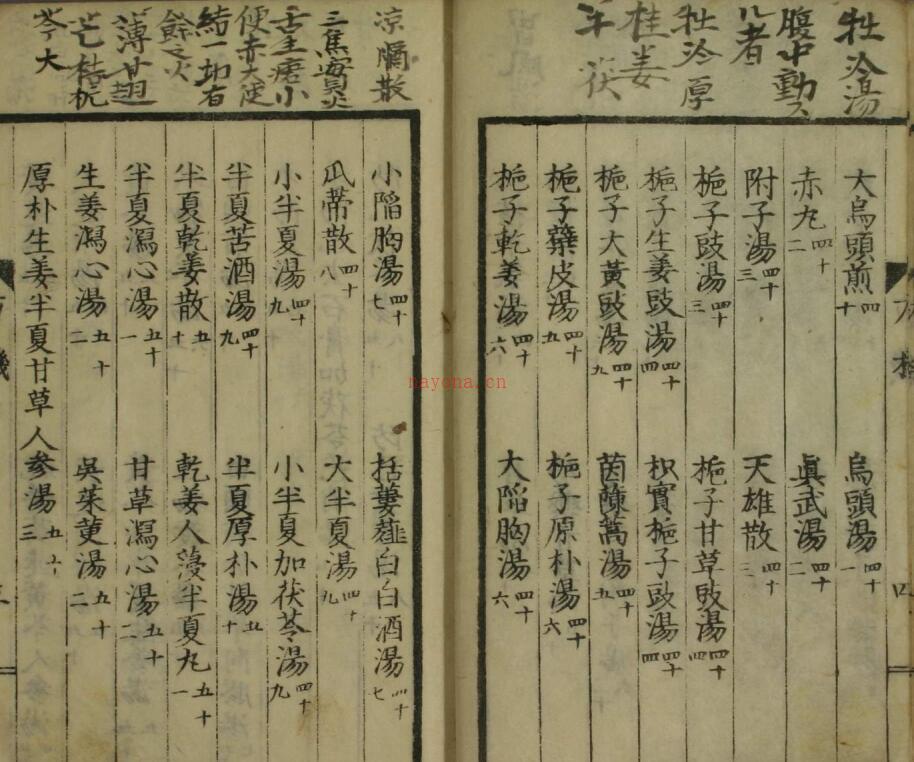 牡泠湯
腹中動
者
牡泠厚
桂姜
茯
大烏頭煎 四十
烏頭湯 四十一
赤丸 四十二
眞武湯 四十二
附子湯 四十三
天雄散 四十三
梔子豉湯 四十三
梔子甘草豉湯 四十四
梔子生姜豉湯 四十四
枳實梔子豉湯 四十四
梔子大黃豉湯 四十九
茵蔯蒿湯 四十五
梔子蘗皮湯 四十五
梔子厚朴湯 四十六
梔子乾姜湯 四十六
大陷胸湯 四十六
凉膈散
三焦實火
舌生瘡小
便赤大便
結一切有
餘之火
薄甘翹
芒梔桄
芩大
小陷胸湯 四十七
括蔞薤白白酒湯 四十七
瓜蒂散 四十八
大半夏湯 四十九
小半夏湯 四十九
小半夏加茯苓湯 四十九
半夏苦酒湯 四十九
半夏厚朴湯 五十
半夏乾姜散 五十
乾姜人蓡半夏丸 五十一
半夏瀉心湯 五十一
甘草瀉心湯 五十二
生姜瀉心湯 五十二
吳茱萸湯 五十二
厚朴生姜半夏甘草人参湯 五十三
方機
四
nayona.cn